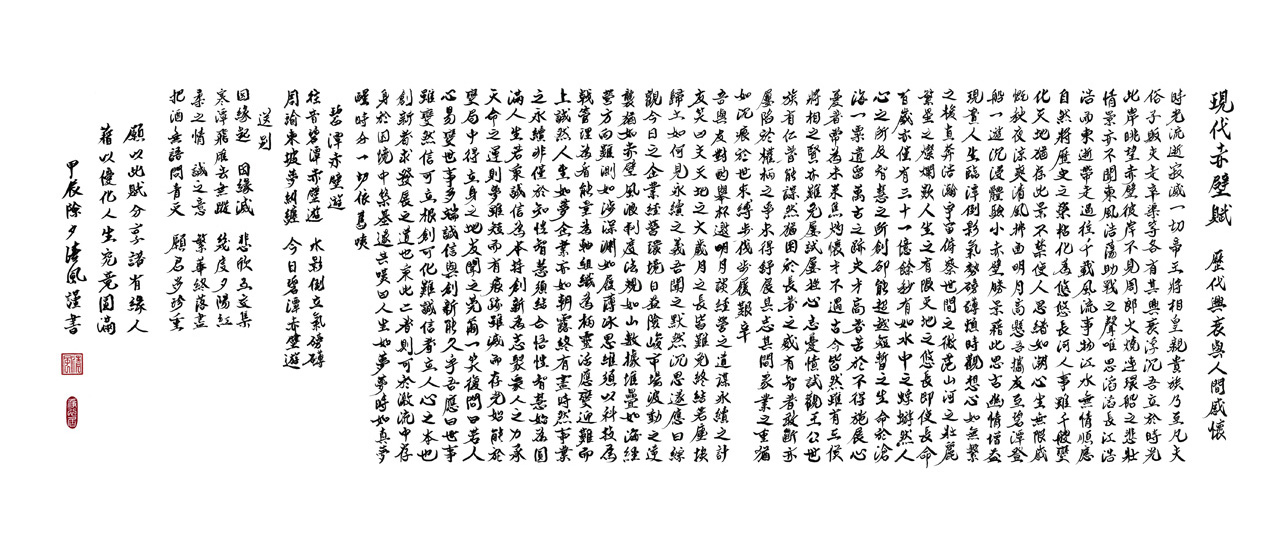 現代赤壁賦 歷代興衰與人間感懷
時光流逝寂滅一切帝王將相皇親貴族乃至凡夫
俗子販夫走卒業等各有其興衰浮沉吾立於時光
此岸眺望赤壁彼岸不見周郎火燒連環船之悲壯
情景亦不聞東風浩蕩助戰之聲唯思滔滔長江浩
浩而東逝帶走過往千載風流事物江水無情順應
自然將歷史之桑粘化為悠悠長河人事雖千般變
化天地猶存此景不禁使人思緒如潮心生無限感
慨秋夜涼爽清風拂面明月高懸吾攜友至碧潭登
船一遊沉浸體驗小赤壁勝景藉此思古幽情增益
現實人生臨潭倒影氣勢磅礴煩時觀想心如無繫
之梭直奔浩瀚宇宙俯察世間之微茫山河之壯麗
繁星之燦爛歎人生之有限天地之悠長即使長命
百歲亦僅有三十一億餘秒有如水中之蜉蝣然人
心之所及智慧之所創卻能超越短暫之生命於滄
海一粟遺留萬古之跡夫才高者苦於不得施展心
憂者常因境未來焦灼悵才不遇古今皆然雖有三侯
將相之賢亦難免屢試屢挫心志憂憤試觀王公世
族有仁者能謀然猶困於長者之威有智者敢斷亦
屢陷於權柄之爭未得舒展其志其問家業之重猶
如沉痕於世束縛步伐步履艱辛
吾與友對酌舉杯邀明月談經營之道謀永續之計
友笑曰夫天地之大歲月之長皆難免終結若塵埃
歸土如何見永續之義吾聞之默然沉思遂應曰綜
觀今日之企業經營環境日益險峻市場波動之速
襲猶如赤壁風浪制度法規如山數據堆疊如海經
營方向難測如涉深淵如履薄冰思維須以科技為
戟管理為盾能量為軸組織為柄靈活應變迎難而
上誠然人生如夢企業亦如朝露終有盡時然事業
之永續非僅於知性智慧須結合悟性智慧始為圓
滿人生若秉誠信為本持創新為志聚眾人之力承
天命之運則夢雖短而有痕跡雖滅而存光始能於
變局中得立身之地友聞之莞爾一笑復問曰若人
心易變世事多端誠信與創新能久乎吾應曰世事
雖變然信可立根創可化難誠信者立人心之本也
創新者求發展之道也秉此二者則可於激流中存
身於困境中築基遂共嘆曰人生如夢夢時如真夢
醒時分一切依舊唉
碧潭赤壁遊
往昔碧潭赤壁遊 水影倒立氣磅礴
周瑜東坡夢糾纏 今日碧潭赤壁遊
送別
因緣起 因緣滅 悲歡離合交集
寒潭飛雁去無蹤 幾度夕陽紅
柔之情 誠之意 繁華終落盡
把酒無語問青天 願君多珍重
願以此賦分享諸有緣人
藉以優化人生究竟圓滿
甲辰除夕清風謹書